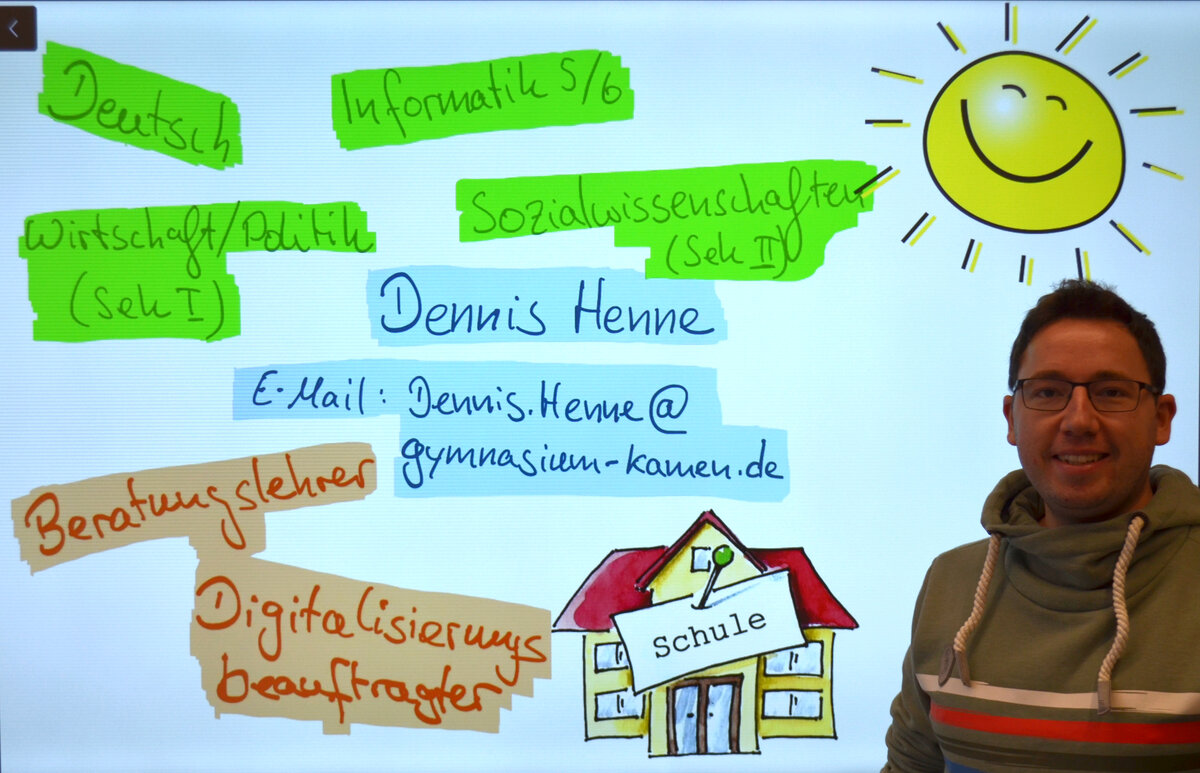 Deutsch
Informatik 5/6
Wirtschaft/Politik
(Sek I)
Sozialwissenschaften
(Sek II)
Dennis Henne
E-Mail: Dennis.Henne@
gymnasium-kamen.de
Beratungslehrer
Digitalisierungs
beauftragter
Schule